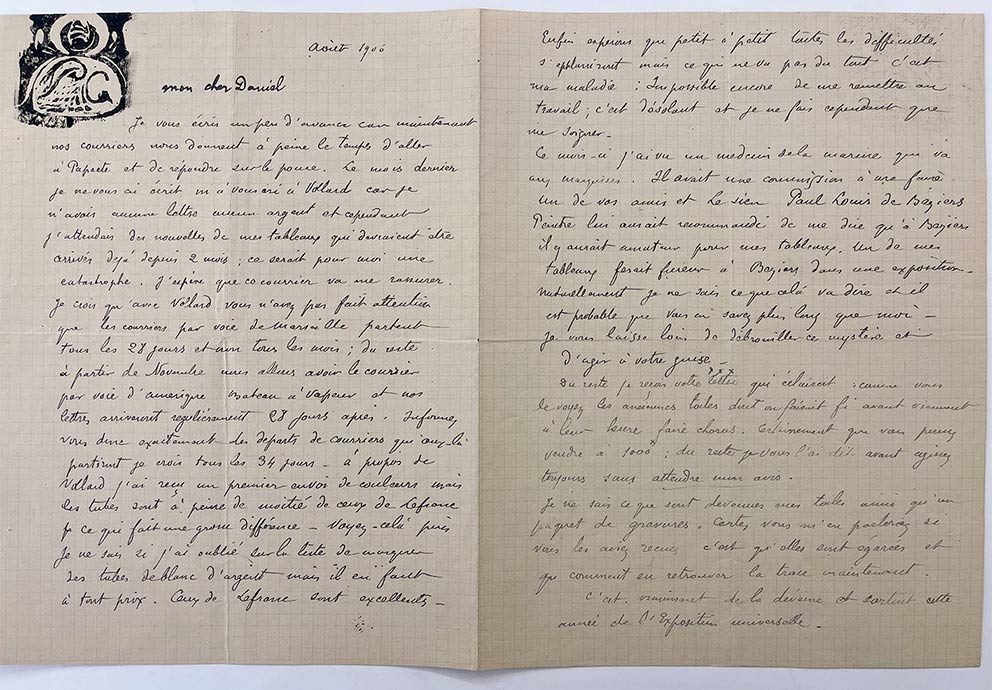 Août 1900
mon cher Daniel
Je vous écris un peu d'avance car maintenant
nos courriers nous donnent à peine le temps d'aller
à Papeete et de répondre sur le pouce. Le mois dernier
je ne vous ai écrit ni à vous ni à Vollard car je
n'avais aucune lettre aucun argent et cependant
j'attendais des nouvelles de mes tableaux qui devraient être
arrivés déjà depuis 2 mois ; ce serait pour moi une
catastrophe. J'espère que ce courrier va me rassurer.
Je crois qu'avec Volard vous n'avez pas fait attention
que les courriers par voie de Marseille partent
tous les 28 jours et non tous les mois ; du reste
à partir de Novembre nous allons avoir le courrier
par voie d'amérique Bateau à Vapeur et nos
lettres arriveront regulièrement 28 jours après. Informez
vous donc exactement des departs de courriers qui
partiront je crois tous les 34 jours — à propos de
Vollard j'ai reçu un premier envoi de couleurs mais
les tubes sont à peine de moitié de ceux de Lefranc
ce qui fait une grosse différence — Voyez-celà puis
Je ne sais si j'ai oublié sur la liste de marquer
des tubes de blanc d'argent mais il en faut
à tout prix. Ceux de Lefranc sont excellents —
Enfin espérons que petit à petit toutes les difficultés
s' mais ce qui ne va pas du tout c'est
ma maladie ; Impossible encore de me remettre au
travail, c'est désolant et je ne fais cependant que
me soigner —
Ce mois-ci j'ai vu un medecin de la marine qui va
aux marquises. Il avait une commission à me faire.
Un de vos amis et le sien Paul Louis de Beziers
Peintre lui aurait recommandé de me dire qu'à Beziers
il y aurait amateur pour mes tableaux, un de mes
tableaux ferait fureur à Beziers dans une exposition —
naturellement je ne sais ce que celà va dire et il
est probable que vous en savez plus long que moi —
Je vous laisse loin de débrouiller ce mystère et
d'agir à votre guise —
Du reste je reçois votre lettre qui éclaircit : comme vous
le voyez les anciennes toiles dont on faisait fi avant viennent
à leur heure faire chorus. Certainement que vous pouvez
vendre à 1000 ; du reste je vous l'ai dit avant agissez
toujours sans attendre mon avis.
Je ne sais ce que sont devenues mes toiles ainsi qu'un
paquet de gravures. Certes vous m'en parleriez si
vous les aviez reçues c'est qu'elles sont égarées et
comment en retrouver la trace maintenant.
C'est vraiment de la déveine et surtout cette
année de l'Exposition universelle —